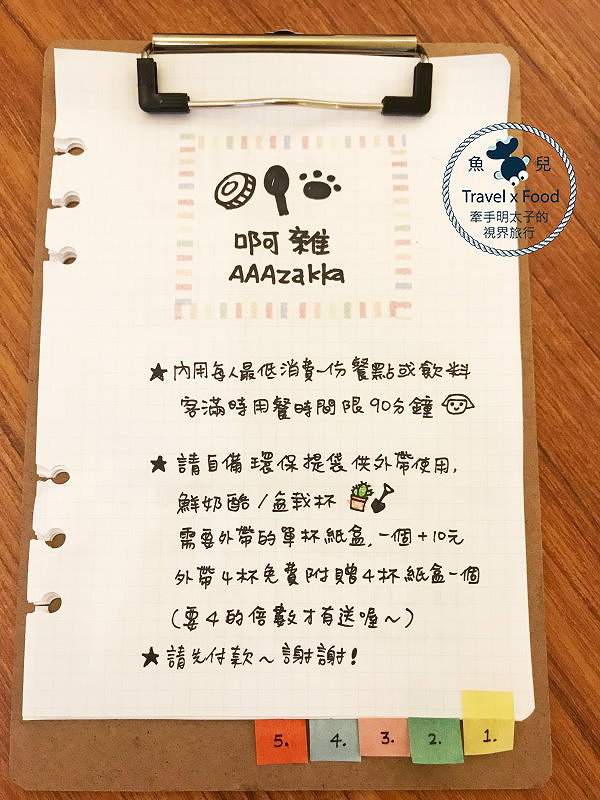 魚兒
Travel x Food
牽手明太子的
視界旅行
啊雜
AAAzakka
★內用每人最低消費一份餐點或飲料
客滿時用餐時間限90分鐘
★請自備環保提袋供外帶使用,
鮮奶酪/盆栽杯
需要外帶的單杯紙盒,一個+10元
外帶4杯免費附贈4杯紙盒一個
(要4的倍數才有送喔~)
★請先付款~謝謝!
5. 4. 3. 2. 1.